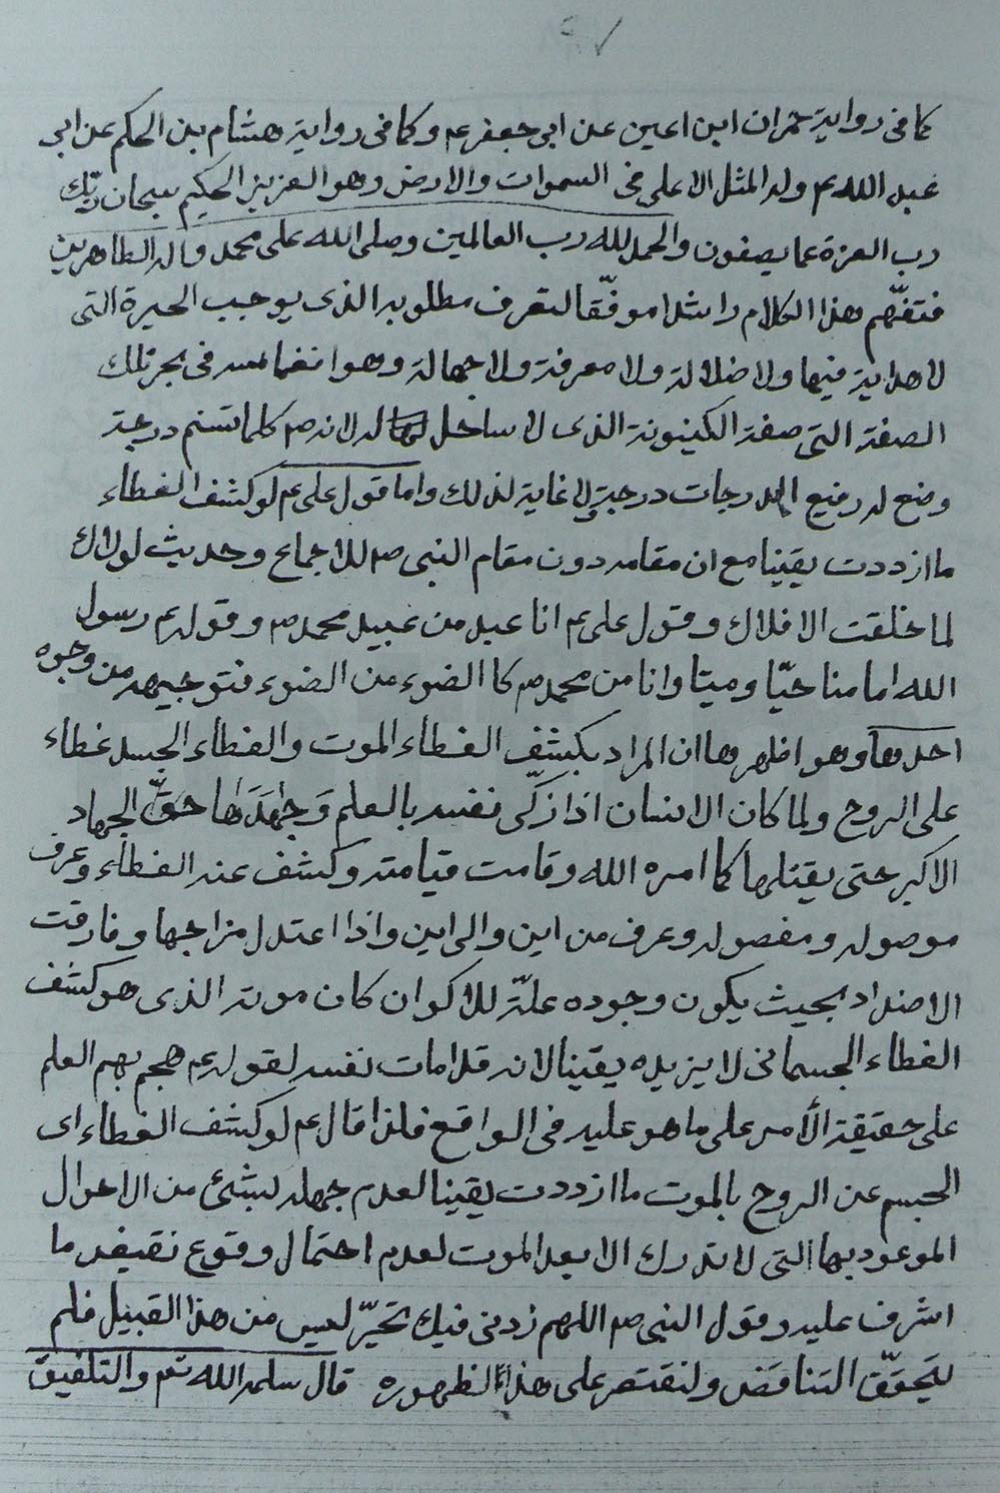 ٩٧
كما فى رواية حمران ابن اعين عن ابى جعفر عم وكما فى رواية هشام بن الحكم عن ابى
عبد الله عم وله المثل الاعلى فى السموات والارض وهو العزيز الحكيم سبحان ربك
رب العزة عما يصفون والحمد لله رب العالمين وصلى الله على محمد واله الطاهرين
فتفهّم هذا الكلام راشدا موفّقا لتعرف مطلوبه الذى يوجب الحيرة التى
لا هداية فيها ولا ضلالة ولا معرفة ولا جهالة وهو انغماسه فى بحر تلك
الصفة التى صفة الكينونة الذى لا ساحل له لانه ص كلما تسنم درجة
وضع له رفيع الدرجات درجة ولا غاية لذلك واما قول على عم لو كشف الغطاء
ما ازددت يقينا مع ان مقامه دون مقام النبى ص للاجماع وحديث لولاك
لما خلقت الافلاك وقول على عم انا عبد من عبيد محمد ص وقوله عم رسول
الله امامنا حيّا وميتا وانا من محمد ص كالضوء من الضوء فتوجيهه من وجوه
احدها وهو اظهرها ان المراد بكشف الغطاء الموت والغطاء الجسد غطاء
على الروح ولما كان الانسان اذا زكّى نفسه بالعلم وَجٰهَدَهٰا حقّ الجهاد
الاكبر حتى يقتلها كما امره الله وقامت قيامته وكشف عنه الغطاء وعرف
موصوله ومفصوله وعرف من اين والى اين واذا اعتدل مزاجها وفارقت
الاضداد بحيث يكون وجوده علّة للاكوان كان موته الذى هو كشف
الغطاء الجسمانى لا يزيده يقينا لانه قد امات نفسه لقوله عم هجم بهم العلم
على حقيقة الأمر على ما هو عليه فى الواقع فلذا قال عم لو كشف الغطاء اى
الجسم عن الروح بالموت ما ازددت يقينا لعدم جهله بشئ من الاحوال
الموعود بها التى لا تدرك الا بعد الموت لعدم احتمال وقوع نقيض ما
اشرف عليه وقول النبى ص اللهم زدنى فيك تحيّر ليس من هذا القبيل فلم
يتحقّق التناقض ولنقتصر على هذا لظهوره قال سلمه الله تعم والتلفيق